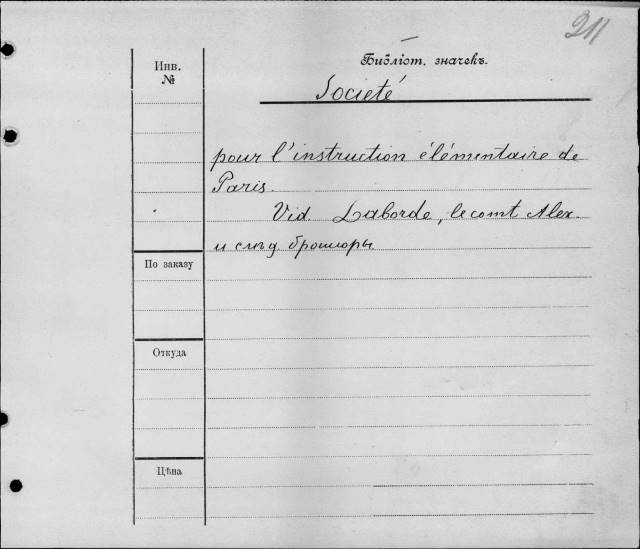 211
Инв.
№
Библіот. значекъ.
Societé
pour l'instruction élémentaire de
Paris.
Vid. Laborde, le comt Alex.
и слѣд. брошюры.
По заказу
Откуда
Цѣна